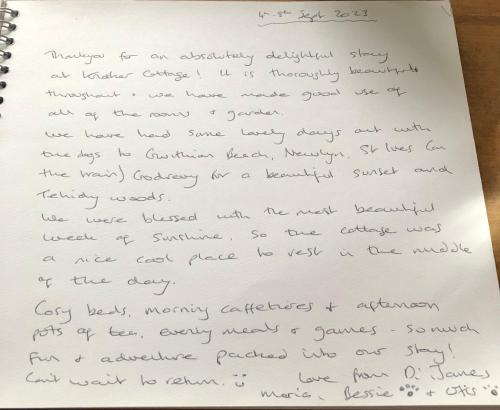 4th-8th Sept 2023
Thankyou for an absolutely delightful stay
at Kroher Cottage! It is thoroughly beautiful
throughout & we have made good use of
all of the rooms & garden.
We have had some lovely days out with
the dogs to Gwithian Beach, Newlyn, St Ives (on
the train) Godrevy for a beautiful sunset and
Tehidy woods.
We were blessed with the most beautiful
week of sunshine, so the cottage was
a nice cool place to rest in the middle
of the day.
Cosy beds, morning caffetieres & afternoon
pots of tea, evening meals & games - so much
fun & adventure packed into our stay!
Can't wait to return.
Love from Di, James
Maria, Bessie & Otis